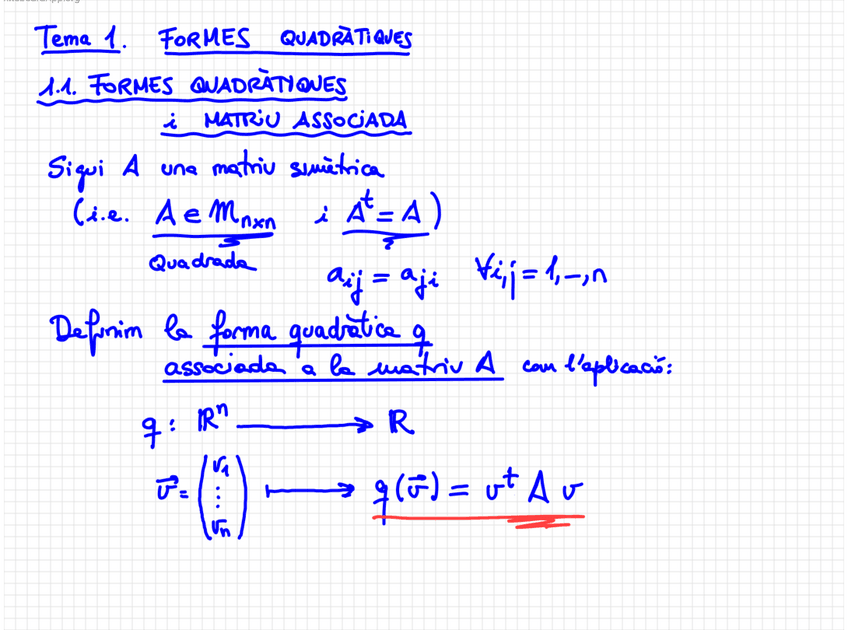 Tema 1. FORMES QUADRÀTIQUES
1.1. FORMES QUADRÀTIQUES
i MATRIU ASSOCIADA
Sigui A una matriu simètrica
(i.e. A ∈ M_{n×n} i A^t = A)
Quadrada
a_{ij} = a_{ji} ∀i,j = 1,-,n
Definim la forma quadràtica q
associada a la matriu A com l'aplicació:
q : ℝ^n ⟶ ℝ
v⃗ = (v_1 ⋮ v_n) ⟼ q(v⃗) = v^t A v